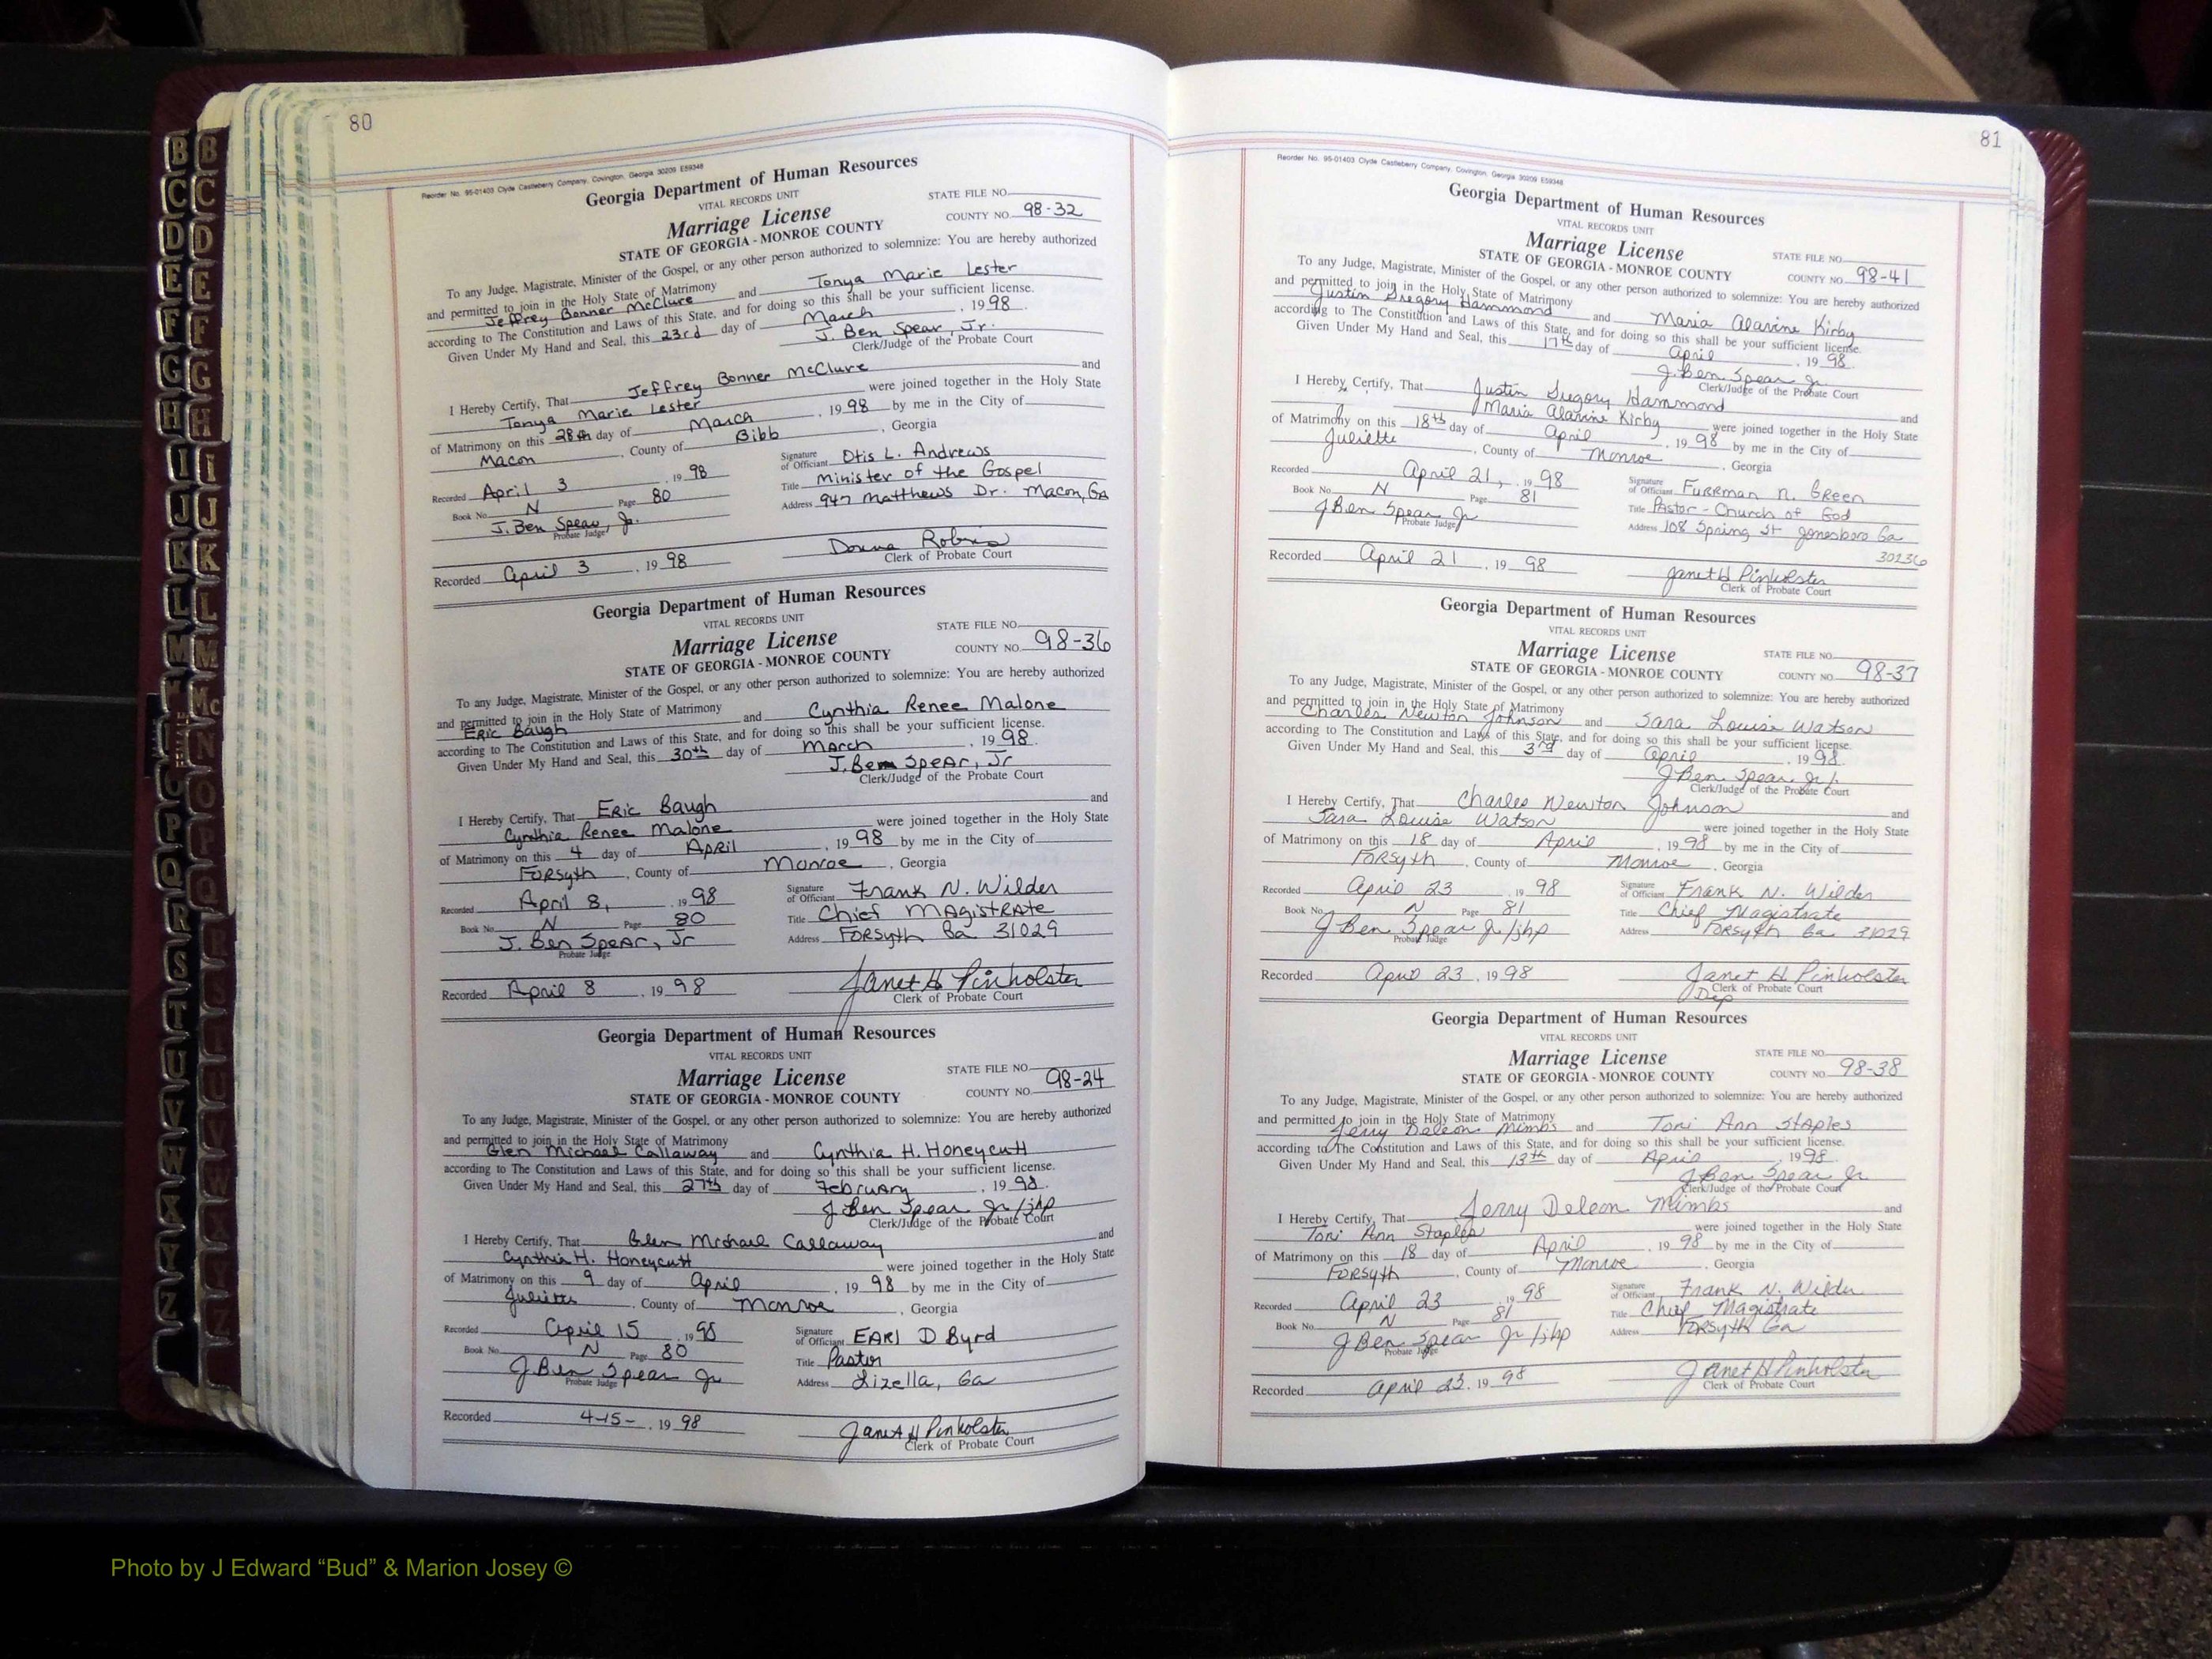 80
Reorder No. 95-01403 Clyde Castleberry Company, Covington, Georgia 30209 E59348
Georgia Department of Human Resources
VITAL RECORDS UNIT
STATE FILE NO.
Marriage License
COUNTY NO. 98-32
STATE OF GEORGIA - MONROE COUNTY
To any Judge, Magistrate, Minister of the Gospel, or any other person authorized to solemnize: You are hereby authorized
and permitted to join in the Holy State of Matrimony
Jeffrey Bonner McClure and Tonya Marie Lester
according to The Constitution and Laws of this State, and for doing so this shall be your sufficient license.
Given Under My Hand and Seal, this 23rd day of March, 1998.
J. Ben Spear, Jr.
Clerk/Judge of the Probate Court
I Hereby Certify, That Jeffrey Bonner McClure and
Tonya Marie Lester were joined together in the Holy State
of Matrimony on this 28th day of March, 1998 by me in the City of
Macon, County of Bibb, Georgia
Recorded April 3, 1998
Book No. N Page 80
J. Ben Spear, Jr.
Probate Judge
Signature of Officiant Otis L. Andrews
Title Minister of the Gospel
Address 947 Matthews Dr. Macon, GA
Recorded April 3, 1998
Donna
Clerk of Probate Court
Georgia Department of Human Resources
VITAL RECORDS UNIT
STATE FILE NO.
Marriage License
COUNTY NO. 98-36
STATE OF GEORGIA - MONROE COUNTY
To any Judge, Magistrate, Minister of the Gospel, or any other person authorized to solemnize: You are hereby authorized
and permitted to join in the Holy State of Matrimony
Eric Baugh and Cynthia Renee Malone
according to The Constitution and Laws of this State, and for doing so this shall be your sufficient license.
Given Under My Hand and Seal, this 30th day of March, 1998.
J. Ben Spear, Jr
Clerk/Judge of the Probate Court
I Hereby Certify, That Eric Baugh and
Cynthia Renee Malone were joined together in the Holy State
of Matrimony on this 4 day of April, 1998 by me in the City of
Forsyth, County of Monroe, Georgia
Recorded April 8, 1998
Book No. N Page 80
J. Ben Spear, Jr
Probate Judge
Signature of Officiant Frank N. Wilder
Title Chief Magistrate
Address Forsyth Ga 31029
Recorded April 8, 1998
Janet H Pinholster
Clerk of Probate Court
Georgia Department of Human Resources
VITAL RECORDS UNIT
STATE FILE NO.
Marriage License
COUNTY NO. 98-24
STATE OF GEORGIA - MONROE COUNTY
To any Judge, Magistrate, Minister of the Gospel, or any other person authorized to solemnize: You are hereby authorized
and permitted to join in the Holy State of Matrimony
Glen Michael Callaway and Cynthia H. Honeycutt
according to The Constitution and Laws of this State, and for doing so this shall be your sufficient license.
Given Under My Hand and Seal, this 27th day of February, 1998.
J Ben Spear Jr/jhp
Clerk/Judge of the Probate Court
I Hereby Certify, That Glen Michael Callaway and
Cynthia H. Honeycutt were joined together in the Holy State
of Matrimony on this 9 day of April, 1998 by me in the City of
Juliette, County of Monroe, Georgia
Recorded April 15, 1998
Book No. N Page 80
J Ben Spear Jr
Probate Judge
Signature of Officiant Earl D Byrd
Title Pastor
Address Lizella, Ga
Recorded 4-15-, 1998
Janet H Pinholster
Clerk of Probate Court
81
Reorder No. 95-01403 Clyde Castleberry Company, Covington, Georgia 30209 E59348
Georgia Department of Human Resources
VITAL RECORDS UNIT
Marriage License
STATE FILE NO.
STATE OF GEORGIA - MONROE COUNTY
COUNTY NO. 98-41
To any Judge, Magistrate, Minister of the Gospel, or any other person authorized to solemnize: You are hereby authorized
and permitted to join in the Holy State of Matrimony
Justin Gregory Hammond and Maria Alavine Kirby
according to The Constitution and Laws of this State, and for doing so this shall be your sufficient license.
Given Under My Hand and Seal, this 17th day of April, 1998.
J. Ben Spear Jr.
Clerk/Judge of the Probate Court
I Hereby Certify, That Justin Gregory Hammond
Maria Alavine Kirby and
were joined together in the Holy State
of Matrimony on this 18th day of April, 1998 by me in the City of
Juliette, County of Monroe, Georgia
Recorded April 21, 1998
Book No. N Page 81
J Ben Spear Jr
Probate Judge
Signature of Officiant Furrman N. Green
Title Pastor - Church of God
Address 108 Spring St Jonesboro Ga
30236
Recorded April 21, 1998
Janet H Pinholster
Clerk of Probate Court
Georgia Department of Human Resources
VITAL RECORDS UNIT
Marriage License
STATE FILE NO.
STATE OF GEORGIA - MONROE COUNTY
COUNTY NO. 98-37
To any Judge, Magistrate, Minister of the Gospel, or any other person authorized to solemnize: You are hereby authorized
and permitted to join in the Holy State of Matrimony
Charles Newton Johnson and Sara Louise Watson
according to The Constitution and Laws of this State, and for doing so this shall be your sufficient license.
Given Under My Hand and Seal, this 3rd day of April, 1998.
J Ben Spear Jr.
Clerk/Judge of the Probate Court
I Hereby Certify, That Charles Newton Johnson and
Sara Louise Watson were joined together in the Holy State
of Matrimony on this 18 day of April, 1998 by me in the City of
Forsyth, County of Monroe, Georgia
Recorded April 23, 1998
Book No. N Page 81
J Ben Spear Jr/jhp
Probate Judge
Signature of Officiant Frank N. Wilder
Title Chief Magistrate
Address Forsyth Ga 31029
Recorded April 23, 1998
Janet H. Pinholster
Clerk of Probate Court
Dep
Georgia Department of Human Resources
VITAL RECORDS UNIT
Marriage License
STATE FILE NO.
STATE OF GEORGIA - MONROE COUNTY
COUNTY NO. 98-38
To any Judge, Magistrate, Minister of the Gospel, or any other person authorized to solemnize: You are hereby authorized
and permitted to join in the Holy State of Matrimony
Jerry Deleon Mimbs and Tori Ann Staples
according to The Constitution and Laws of this State, and for doing so this shall be your sufficient license.
Given Under My Hand and Seal, this 13th day of April, 1998.
J Ben Spear Jr
Clerk/Judge of the Probate Court
I Hereby Certify, That Jerry Deleon Mimbs and
Tori Ann Staples were joined together in the Holy State
of Matrimony on this 18 day of April, 1998 by me in the City of
Forsyth, County of Monroe, Georgia
Recorded April 23, 1998
Book No. N Page 81
J Ben Spear Jr/jhp
Probate Judge
Signature of Officiant Frank N. Wilder
Title Chief Magistrate
Address Forsyth Ga
Recorded April 23, 1998
Janet H Pinholster
Clerk of Probate Court
Photo by J Edward “Bud” & Marion Josey ©